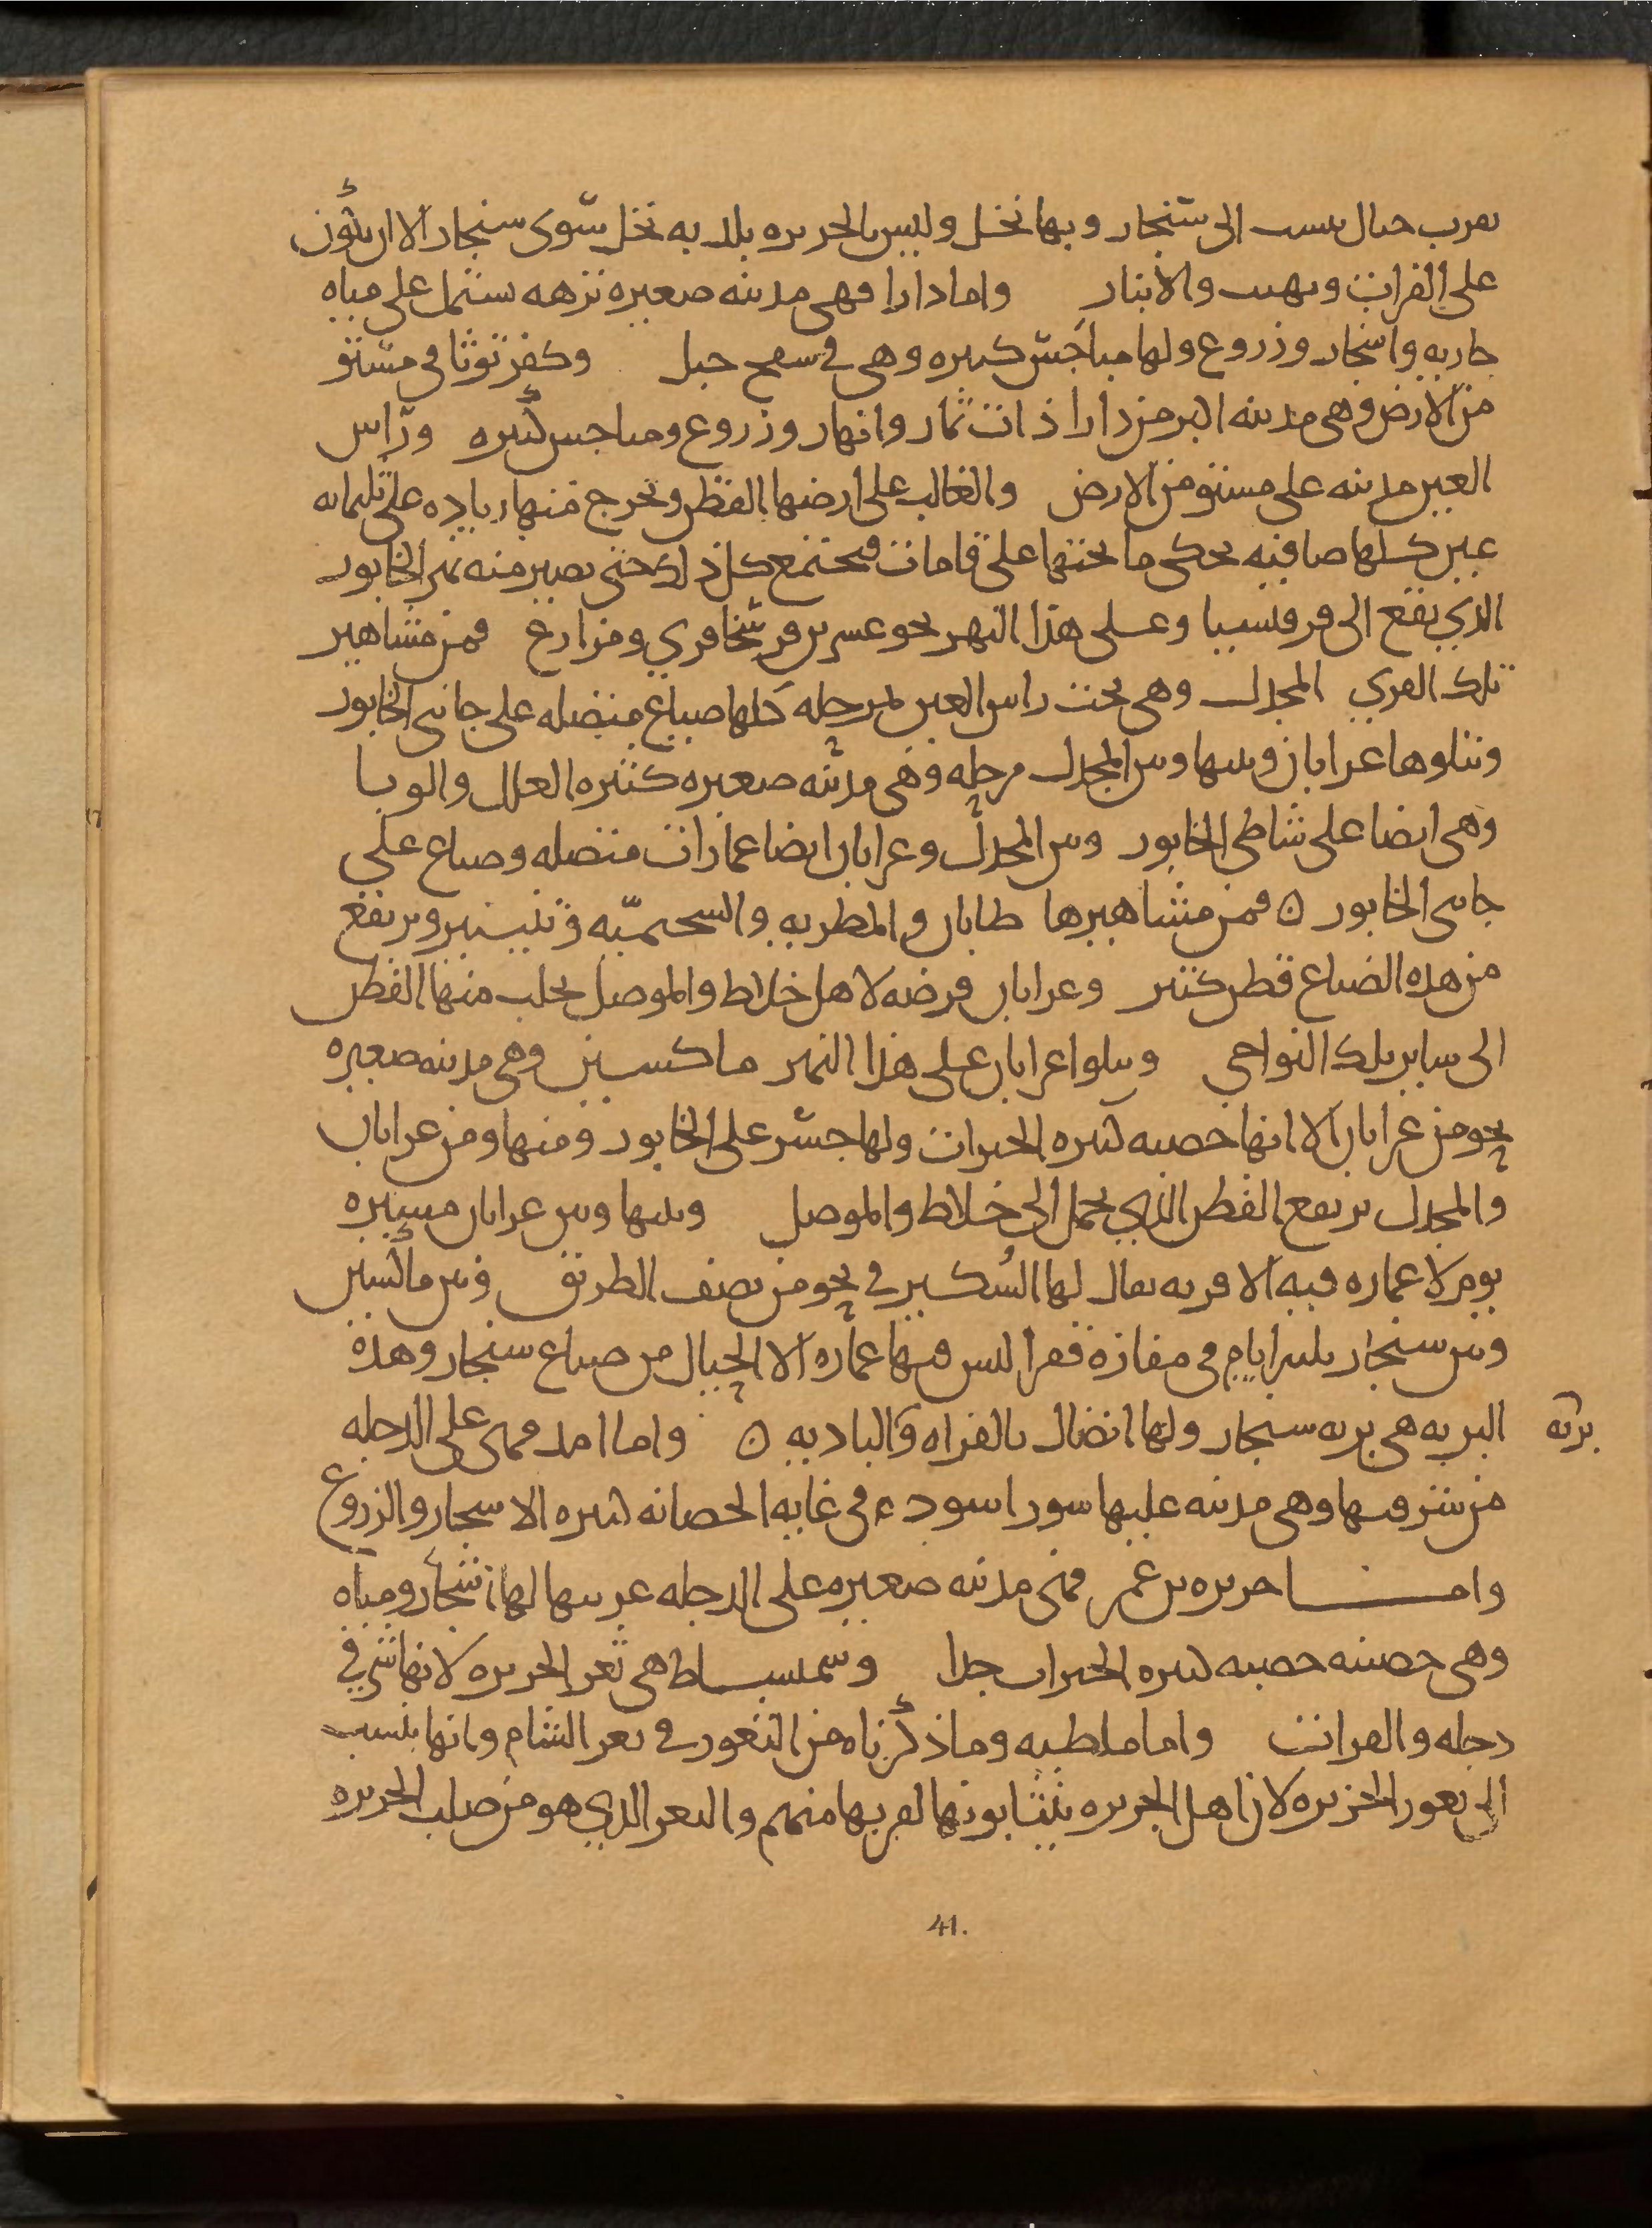 بقرب جبال ينسب الى سنجار وبها نخل وليس بالجزيره بلد به نخل سوى سنجار الا ان يكون
على الفرات وبهيت والانبار واما دارا فهى مدينه صغيره نزهه تشتمل على مياه
جاريه واشجار وزروع ولها مباخس كثيره وهى في سفح جبل وكفرتوثا في مستو
من الارض وهى مدينه اكبر من دارا ذات ثمار وانهار وزروع ومباخس كثيره وراس
العين مدينه على مستو من الارض والغالب على ارضها القطن ويخرج منها زياده على ثلثمايه
عين كلها صافيه يحكى ما تحتها على قامات فيجتمع كل ذلك حتى يصير منه نهر الخابور
الذي يقع الى قرقيسيا وعلى هذا النهر نحو عشرين فرسخا قري ومزارع فمن مشاهير
تلك القري المجدل وهى تحت راس العين بمرحله كلها ضياع متصله على جانبى الخابور
وتتلوها عرابان وبينها وبين المجدل مرحله وهى مدينه صغيره كثيره العلل والوبا
وهى ايضا على شاطى الخابور وبين المجدل وعرابان ايضا عمارات متصله وضياع على
جانبى الخابور ٥ فمن مشاهيرها طابان والمطريه والسحميّه وتنينير ويرتفع
من هذه الضياع قطن كثير وعرابان فرضه لاهل خلاط والموصل يجلب منها القطن
الى ساير تلك النواحي ويتلوا عرابان على هذا النهر ماكسين وهى مدينه صغيره
نحو من عرابان الا انها خصبه كثيره الخيرات ولها جسر على الخابور ومنها ومن عرابان
والمجدل يرتفع القطن الذي يحمل الى خلاط والموصل وبينها وبين عرابان مسيره
يوم لا عماره فيه الا قريه يقال لها السُكير في نحو من نصف الطريق وبين ماكسين
وبين سنجار ثلثه ايام في مفازة قفرا ليس فيها عماره الا الجبال من ضياع سنجار وهذه
البريه هى بريه سنجار ولها اتصال بالفراه والباديه ٥ واما امد فهى على الدجله
بريه
من شرقيها وهى مدينه عليها سور اسود في غايه الحصانه كثيره الاشجار والزروع
واما جزيره بن عمر فهى مدينه صغيره على الدجله غربيها لها اشجار ومياه
وهى حصينه خصبه كثيره الخيرات جدا وسميساط هى ثغر الجزيره لانها شرقي
دجله والفرات واما ملطيه وما ذكرناه من الثغور في ثغر الشام وانها ينسب
الى ثغور الجزيره لان اهل الجزيره ينتابونها لقربها منهم والثغر الذي هو من صلب الجزيره
41.